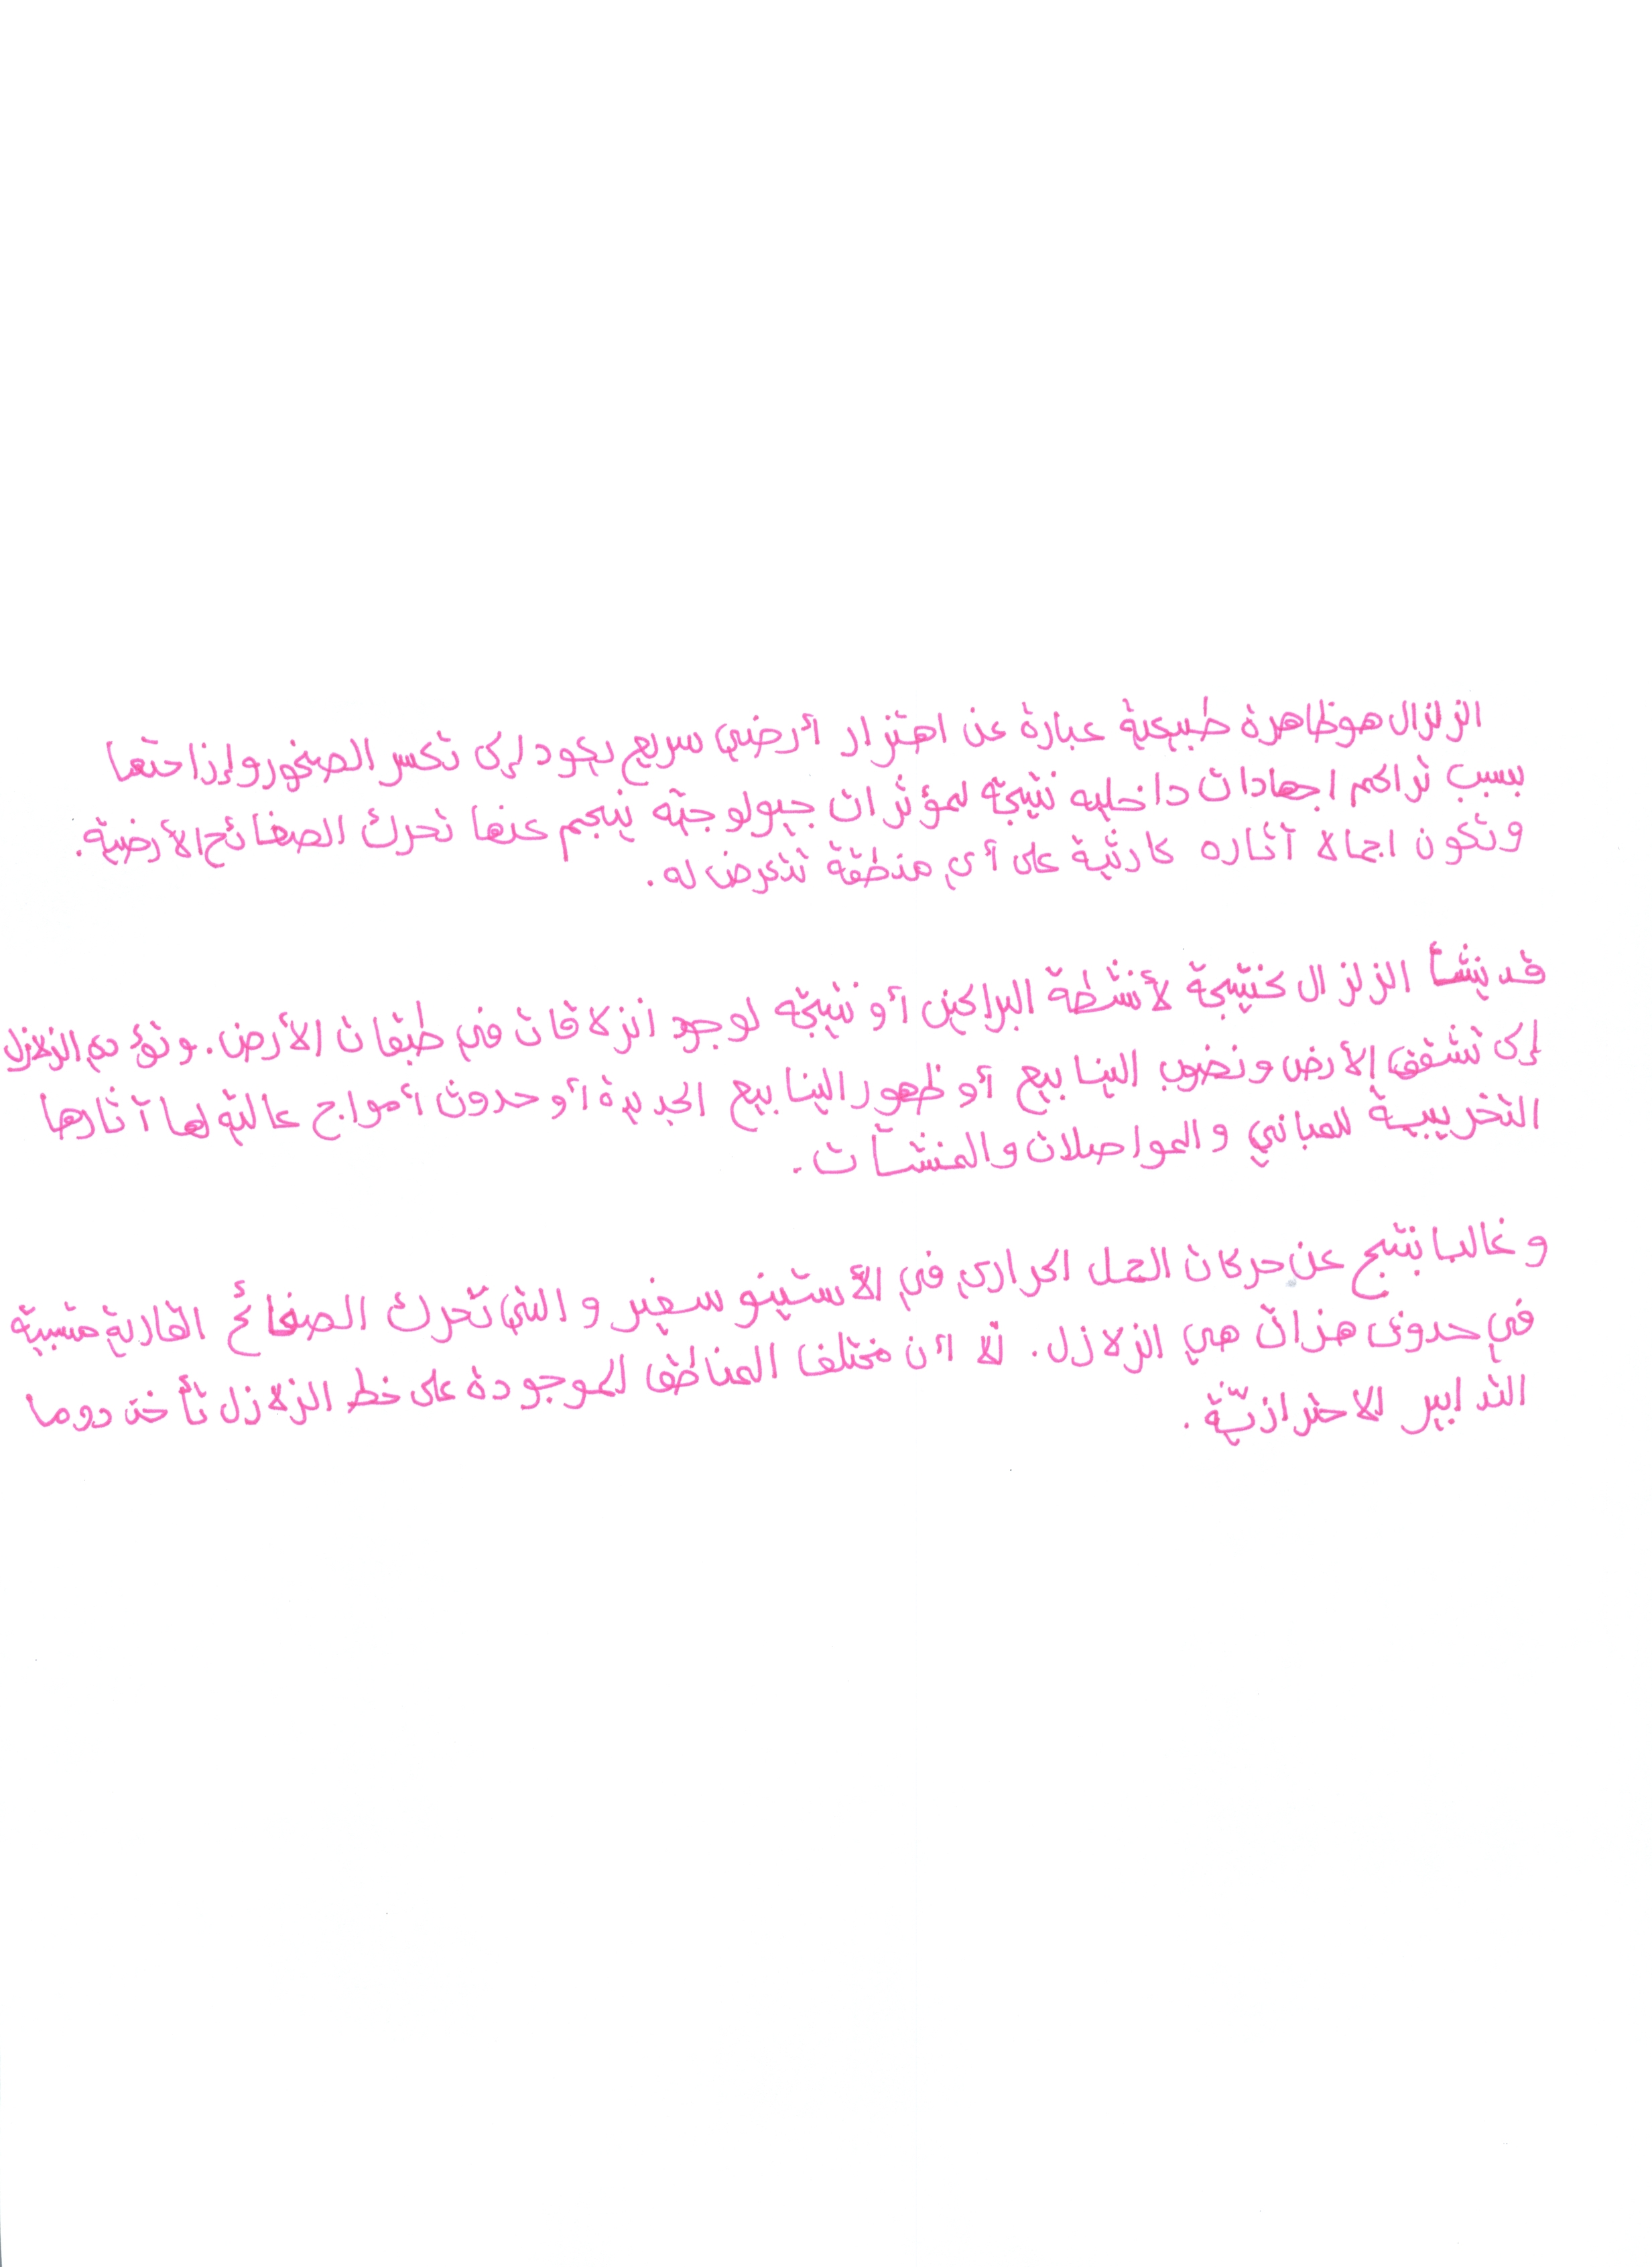 الزلزال هو ظاهرة طبيعية عبارة عن اهتزار أرضي سريع يعود إلى تكسر الصخور وإزاحتها
بسبب تراكم اجهادات داخليه نتيجة لمؤثرات جيولوجية ينجم عنها تحرك الصفائح الأرضية.
وتكون اجمالا آثاره كارثية على أي منطقة تتعرض له.
قد ينشأ الزلزال كنتيجة لأنشطة البراكين أو نتيجة لوجود انزلاقات في طبقات الأرض. وتؤدي الزلازل
إلى تشقق الأرض ونضوب الينابيع أو ظهور الينابيع الجديدة أو حدوث أمواج عالية لها آثارها
التخريبية للمباني والمواصلات والمنشآت.
وغالبا ينتج عن حركات الحمل الحراري في الأستينوسفير والتي تحرك الصفائح القارية متسببة
في حدوث هزات هي الزلازل. كلا أن مختلف المناطق الموجودة على خط الزلازل تأخذ دوما
التدابير الاحترازيّة.